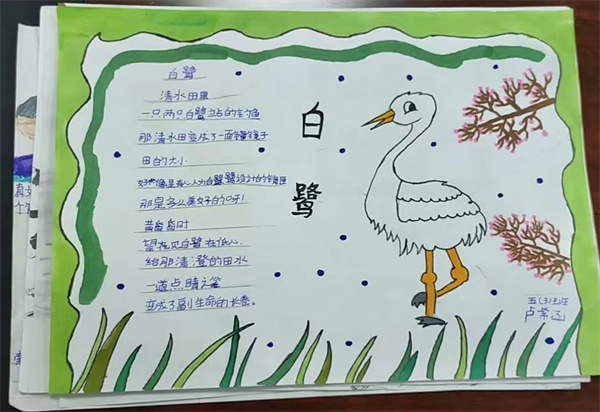 白鹭
清水田里
一只两只白鹭站的钓鱼
那清水田变成了一面镜子
田的大小
好像是有心人为白鹭设计的镜匣
那是多么美好的呀!
黄昏时
望见白鹭在低飞
给那清澄的田水
一道点睛之笔
变成了副生命的长卷。
白
鹭
五(3)班
卢